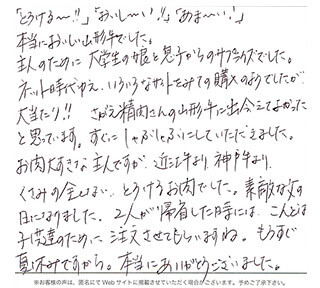 「とろける〜!!」「おいし〜い!!」「あま〜い!」
本当においしい山形牛でした。
主人のために 大学生の娘と息子からのサプライズでした。
ネット時代ゆえ、いろいろなサイトをみての購入のようでしたが、
大当たり!! さがえ精肉さんの山形牛に出会えてよかった
と思っています。すぐに しゃぶしゃぶにしていただきました。
お肉大すきな主人ですが、近江牛より、神戸牛より、
くさみの全くない とろけるお肉でした。素敵な父の
日になりました。2人が帰省した時には、こんどは
子供達のために 注文させてもらいますね。もうすぐ
夏休みですから。本当にありがとうございました。
※お客様の声は、匿名にて Web サイトに掲載させていただく場合がございます。予めご了承下さい。